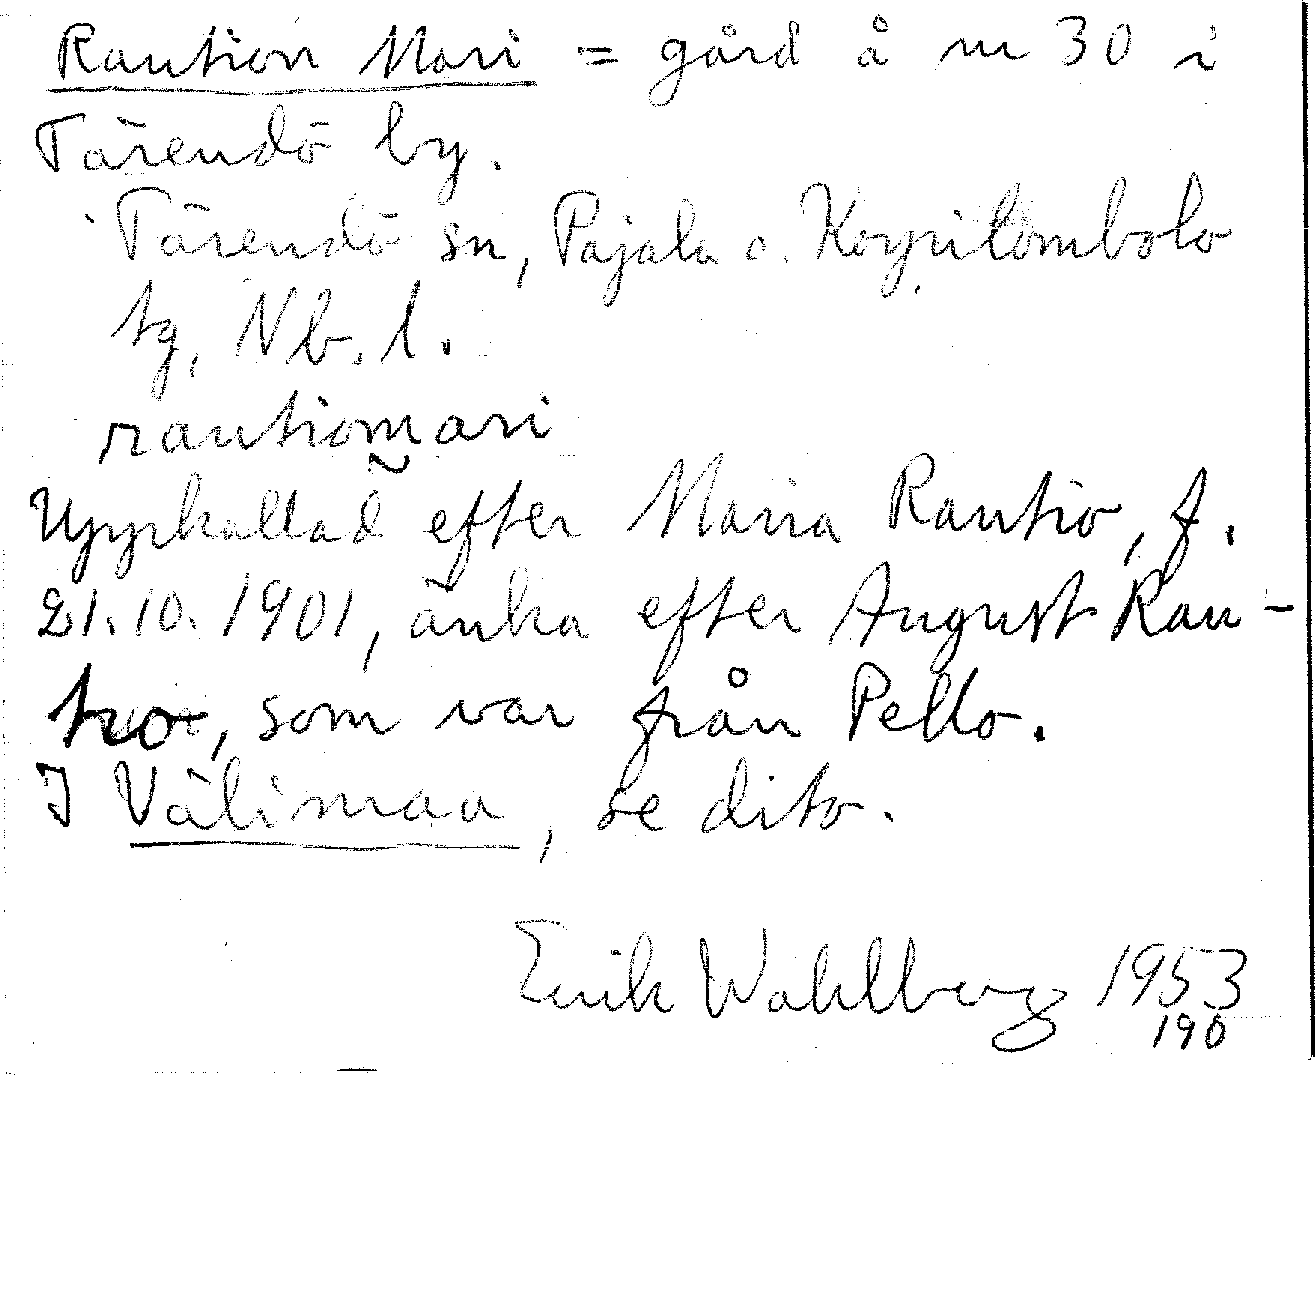 Raution Mari = gård å nr 30 i
Tärendö by.
Tärendö sn, Pajala o. Korpilombolo
tg, Nb. l.
rautiomari
Uppkallad efter Maria Rautio, f.
21.10.1901, änka efter August Rau-
tio, som var från Pello.
I Välimaa, se dito.
Erik Wahlberg 1953
190